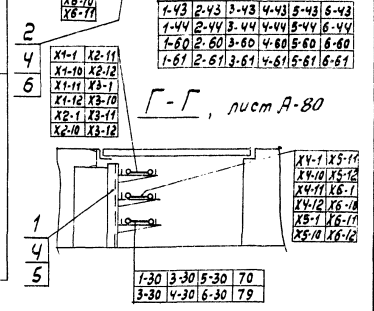 X6-11
1-43 2-43 3-43 4-43 5-43 6-43
1-44 2-44 3-44 4-44 5-44 6-44
1-60 2-60 3-60 4-60 5-60 6-60
1-61 2-61 3-61 4-61 5-61 6-61
2
4
6
X1-1 X2-11
X1-10 X2-12
X1-11 X3-1
X1-12 X3-10
X2-1 X3-11
X2-10 X3-12
Г-Г, лист А-80
X4-1 X5-11
X4-10 X5-12
X4-11 X6-1
X4-12 X6-10
X5-1 X6-11
X5-10 X6-12
1
4
5
1-30 3-30 5-30 70
3-30 4-30 6-30 79